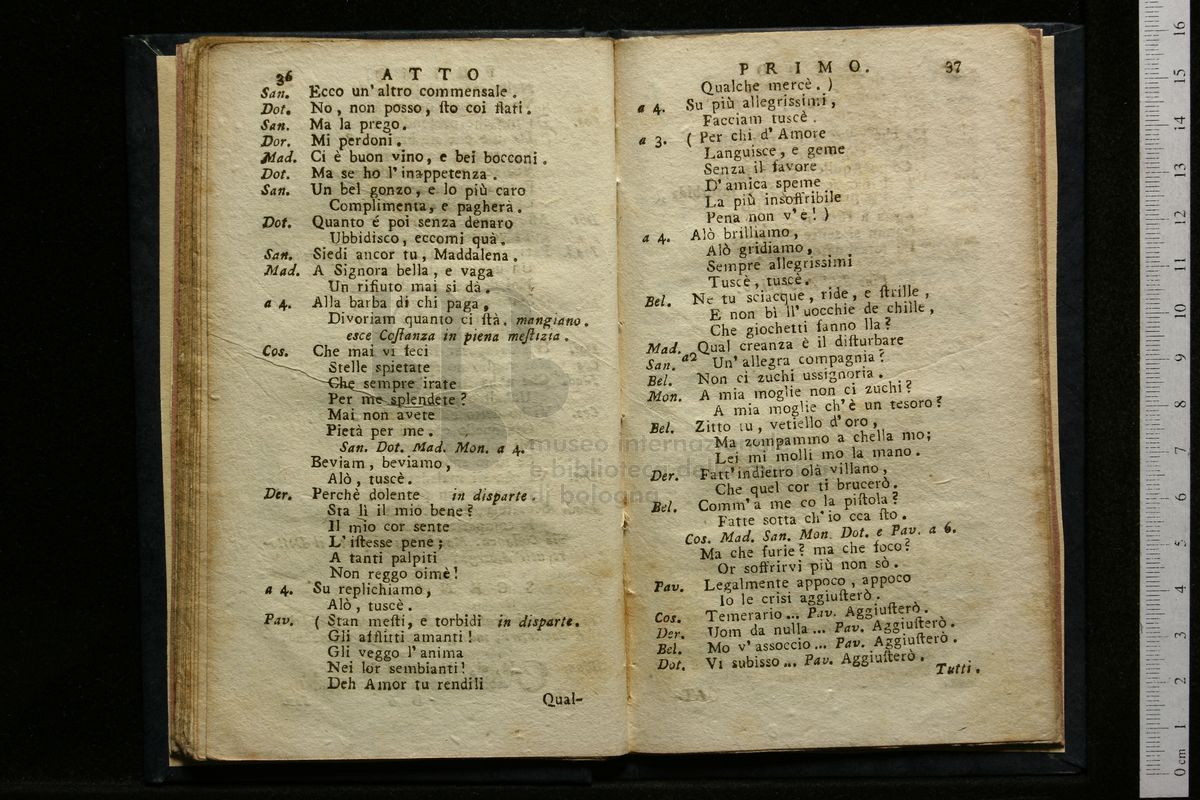 36 ATTO
San. Ecco un' altro commensale.
Dot. No, non posso, ſto coi flati.
San. Ma la prego.
Dor. Mi perdoni.
Mad. Ci è buon vino, e bei bocconi.
Dot. Ma se ho l'inappetenza.
San. Un bel gonzo, e lo più caro
Complimenta, e pagherà.
Dot. Quanto é poi senza denaro
Ubbidisco, eccomi quà.
San. Siedi ancor tu, Maddalena.
Mad. A Signora bella, e vaga
Un rifiuto mai si dà.
a 4. Alla barba di chi paga,
Divoriam quanto ci ſtà. mangiano.
esce Coſtanza in piena meſtizia.
Cos. Che mai vi feci
Stelle spietate
Che sempre irate
Per me splendete?
Mai non avete
Pietà per me.
San. Dot. Mad. Mon. a 4.
Beviam, beviamo,
Alò, tuscè.
Der. Perchè dolente in disparte.
Sta lì il mio bene?
Il mio cor sente
L' iſtesse pene;
A tanti palpiti
Non reggo oimè!
a 4. Su replichiamo,
Alò, tuscè.
Pav. (Stan meſti, e torbidi in disparte.
Gli afflitti amanti!
Gli veggo l'anima
Nei lor sembianti!
Deh Amor tu rendili
Qual-
PRIMO. 37
Qualche mercè.)
a 4. Su più allegrissimi,
Facciam tuscè.
a 3. (Per chi d' Amore
Languisce, e geme
Senza il favore
D' amica speme
La più insoffribile
Pena non v'e!)
a 4. Alò brilliamo,
Alò gridiamo,
Sempre allegrissimi
Tuscè, tuscè.
Bel. Ne tu sciacque, ride, e ſtrille,
E non bì ll' uocchie de chille,
Che giochetti fanno lla?
Mad. Qual creanza è il diſturbare
San. a2 Un' allegra compagnia?
Bel. Non ci zuchi ussignoria.
Mon. A mia moglie non ci zuchi?
A mia moglie ch'è un tesoro?
Bel. Zitto tu, vetiello d'oro,
Ma zompammo a chella mo;
Lei mi molli mo la mano.
Der. Fatt' indietro olà villano,
Che quel cor ti brucerò.
Bel. Comm' a me co la piſtola?
Fatte sotta ch' io cca ſto.
Cos. Mad. San. Mon. Dot. e Pav. a 6.
Ma che furie? ma che foco?
Or soffrirvi più non sò.
Pav. Legalmente appoco, appoco
Io le crisi aggiuſterò.
Cos. Temerario... Pav. Aggiuſterò.
Der. Uom da nulla... Pav. Aggiuſterò.
Bel. Mo v' assoccio... Pav. Aggiuſterò.
Dot. Vi subisso... Pav. Aggiuſterò.
Tutti.
museo internaz
e biblioteca de
di bologna
0 cm 1 2 3 4 5 6 7 8 9 10 11 12 13 14 15 16